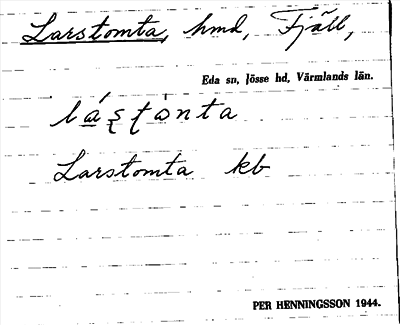 Larstomta, hmd, Fjäll,
Eda sn, Jösse hd, Värmlands län.
Larstomta kb
PER HENNINGSSON 1944.